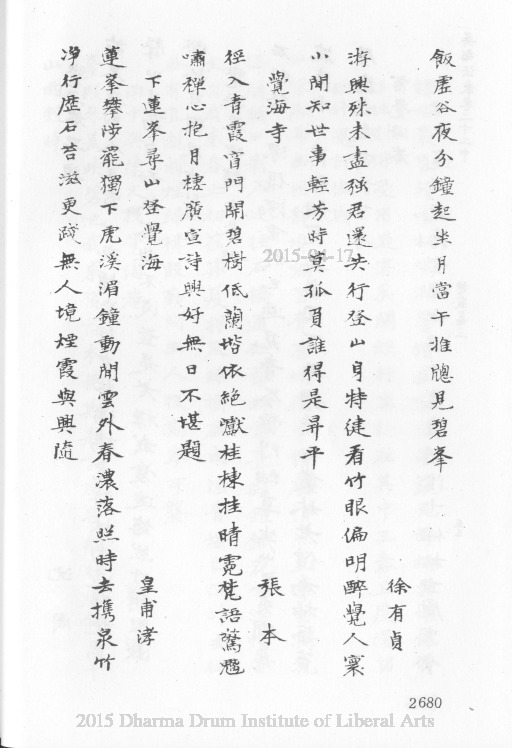 飯虛谷夜分鐘起坐月當午推牕見碧峯
徐有貞
游興殊未盡強君還共行登山身特健看竹眼偏明醉覺人寰
小閒知世事輕芳時莫孤負誰得是昇平
覺海寺
張本
徑入青霞宿門開碧樹低蘭堦依絕巘桂棟挂晴霓梵語驚鼯
嘯禪心抱月棲廣宣詩興好無日不堪題
下連峯尋山登覺海
皇甫涍
蓮峯攀涉罷獨下虎溪湄鐘動閒雲外春濃落照時去攜泉竹
净行歷石苔滋更踐無人境煙霞與興隨
2015-04-17
2680
2015 Dharma Drum Institute of Liberal Arts